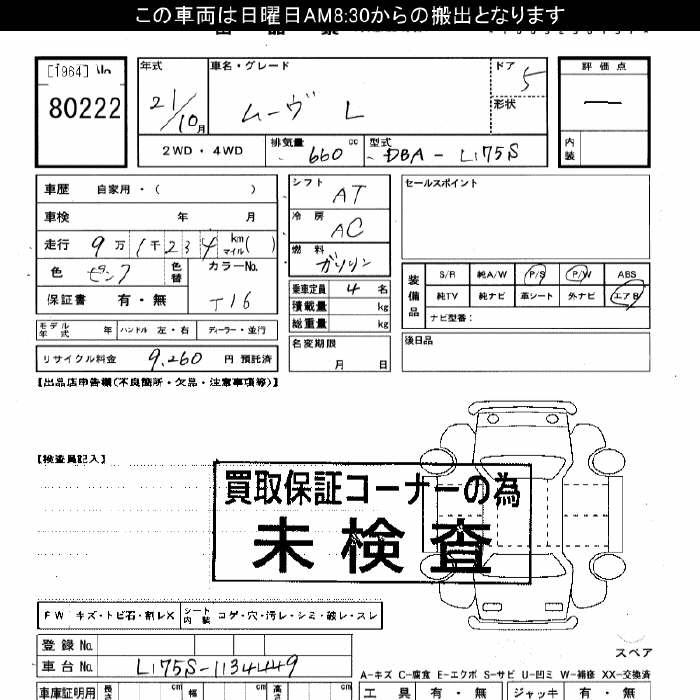 この車両は日曜日AM8:30からの搬出となります
[1964]
80222
年式
車名・グレード
ドア
評価点
21/10月
ムーヴ L
5
形状
2WD・4WD
排気量 660 cc
型式 DBA-L175S
内装
車歴 自家用・( )
車検 年 月
走行 9万1千234 km マイル( )
色
色替
カラーNo. T16
保証書 有・無
シフト AT
冷房 AC
燃料 ガソリン
乗車定員 4名
積載量 kg
総重量 kg
名変期限 月 日
セールスポイント
装備品
S/R 純A/W P/S P/W ABS
純TV 純ナビ 革シート 外ナビ エアB
ナビ型番:
後日品
モデル年式 年 ハンドル 左・右 ディーラー・並行
リサイクル料金 9,260 円 預託済
【出品店申告欄(不良箇所・欠品・注意事項等)】
【検査員記入】
買取保証コーナーの為
未検査
FW キズ・トビ石・割レX シート内装 コゲ・穴・汚レ・シミ・破レ・スレ
登録No.
車台No. L175S-1134449
スペア
A-キズ C-腐食 E-エクボ S-サビ U-凹ミ W-補修 XX-交換済
車庫証明用 長さ cm 幅 cm 高さ cm
工具 有・無 ジャッキ 有・無